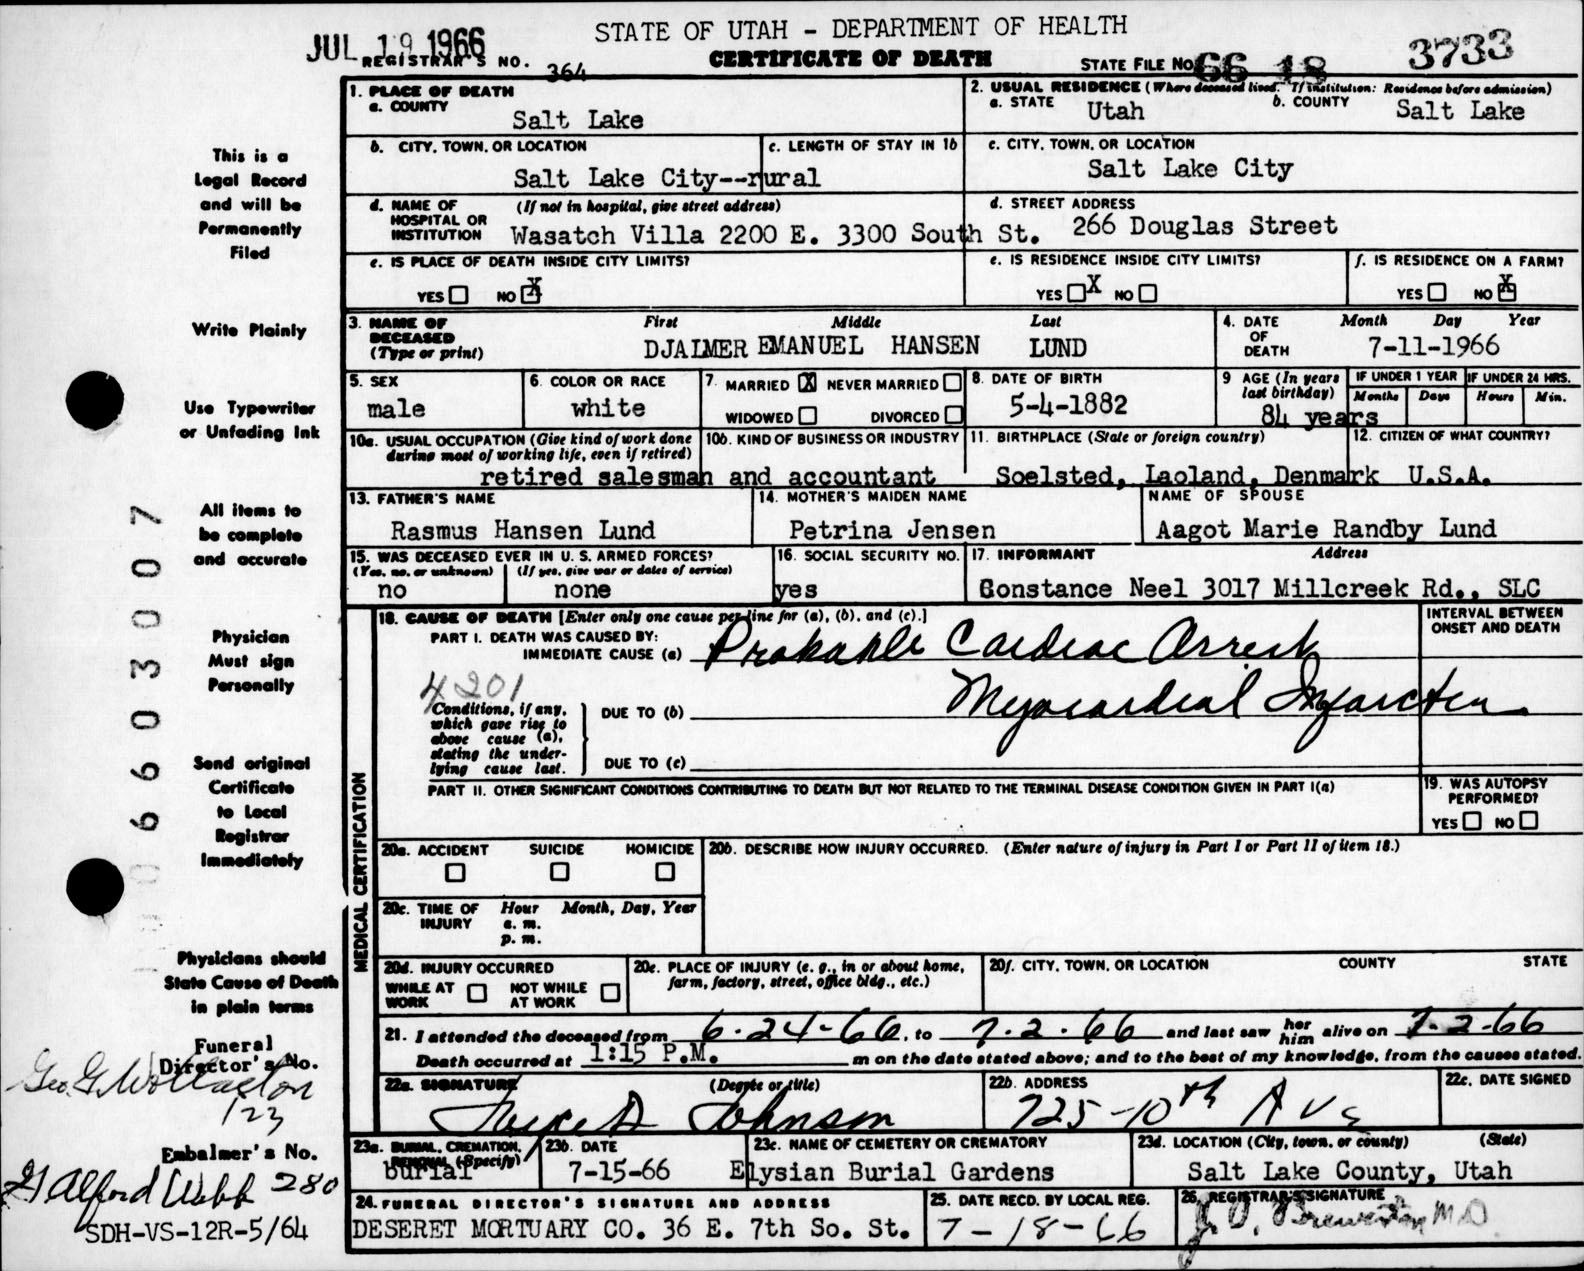 STATE OF UTAH - DEPARTMENT OF HEALTH
JUL 19 1966
REGISTRAR'S NO. 364
CERTIFICATE OF DEATH
STATE FILE NO. 66 18 3733
1. PLACE OF DEATH
a. COUNTY
Salt Lake
2. USUAL RESIDENCE (Where deceased lived. If institution: Residence before admission)
a. STATE Utah b. COUNTY Salt Lake
b. CITY, TOWN, OR LOCATION
Salt Lake City--rural
c. LENGTH OF STAY IN 1b
c. CITY, TOWN, OR LOCATION
Salt Lake City
d. NAME OF HOSPITAL OR INSTITUTION (If not in hospital, give street address)
Wasatch Villa 2200 E. 3300 South St.
d. STREET ADDRESS
266 Douglas Street
e. IS PLACE OF DEATH INSIDE CITY LIMITS?
YES NO X
e. IS RESIDENCE INSIDE CITY LIMITS?
YES X NO
f. IS RESIDENCE ON A FARM?
YES NO X
3. NAME OF DECEASED (Type or print)
First Middle Last
DJALMER EMANUEL HANSEN LUND
4. DATE OF DEATH
Month Day Year
7-11-1966
5. SEX
male
6. COLOR OR RACE
white
7. MARRIED X NEVER MARRIED
WIDOWED DIVORCED
8. DATE OF BIRTH
5-4-1882
9 AGE (In years last birthday)
84 years
IF UNDER 1 YEAR
Months Days
IF UNDER 24 HRS.
Hours Min.
10a. USUAL OCCUPATION (Give kind of work done during most of working life, even if retired)
10b. KIND OF BUSINESS OR INDUSTRY
retired salesman and accountant
11. BIRTHPLACE (State or foreign country)
Soelsted, Laoland, Denmark
12. CITIZEN OF WHAT COUNTRY?
U.S.A.
13. FATHER'S NAME
Rasmus Hansen Lund
14. MOTHER'S MAIDEN NAME
Petrina Jensen
NAME OF SPOUSE
Aagot Marie Randby Lund
15. WAS DECEASED EVER IN U. S. ARMED FORCES?
(Yes, no, or unknown) (If yes, give war or dates of service)
no none
16. SOCIAL SECURITY NO.
yes
17. INFORMANT Address
Constance Neel 3017 Millcreek Rd., SLC
MEDICAL CERTIFICATION
18. CAUSE OF DEATH [Enter only one cause per line for (a), (b), and (c).]
INTERVAL BETWEEN ONSET AND DEATH
PART I. DEATH WAS CAUSED BY:
IMMEDIATE CAUSE (a) Probable Cardiac Arrest
4201
Conditions, if any, which gave rise to above cause (a), stating the underlying cause last.
DUE TO (b) Myocardial Infarction
DUE TO (c)
PART II. OTHER SIGNIFICANT CONDITIONS CONTRIBUTING TO DEATH BUT NOT RELATED TO THE TERMINAL DISEASE CONDITION GIVEN IN PART I(a)
19. WAS AUTOPSY PERFORMED?
YES NO
20a. ACCIDENT SUICIDE HOMICIDE
20b. DESCRIBE HOW INJURY OCCURRED. (Enter nature of injury in Part I or Part II of item 18.)
20c. TIME OF INJURY Hour Month, Day, Year
a. m.
p. m.
20d. INJURY OCCURRED
WHILE AT WORK NOT WHILE AT WORK
20e. PLACE OF INJURY (e. g., in or about home, farm, factory, street, office bldg., etc.)
20f. CITY, TOWN, OR LOCATION COUNTY STATE
21. I attended the deceased from 6-24-66, to 7-2-66 and last saw her him alive on 7-2-66
Death occurred at 1:15 P.M. m on the date stated above; and to the best of my knowledge, from the causes stated.
22a. SIGNATURE (Degree or title)
Johnson
22b. ADDRESS
725-10th Ave
22c. DATE SIGNED
23a. BURIAL, CREMATION, REMOVAL (Specify)
burial
23b. DATE
7-15-66
23c. NAME OF CEMETERY OR CREMATORY
Elysian Burial Gardens
23d. LOCATION (City, town, or county) (State)
Salt Lake County, Utah
24. FUNERAL DIRECTOR'S SIGNATURE AND ADDRESS
DESERET MORTUARY CO. 36 E. 7th So. St.
25. DATE RECD. BY LOCAL REG.
7-18-66
26. REGISTRAR'S SIGNATURE
This is a
Legal Record
and will be
Permanently
Filed
Write Plainly
Use Typewriter
or Unfading Ink
All items to
be complete
and accurate
Physician
Must sign
Personally
Send original
Certificate
to Local
Registrar
Immediately
Physicians should
State Cause of Death
in plain terms
Funeral
Director's No.
Geo. G. Wollaston
123
Embalmer's No.
G Alford Webb 280
SDH-VS-12R-5/64
0 6603007